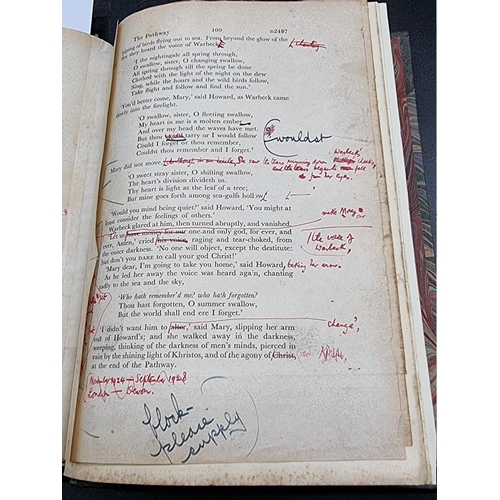 The Pathway 109 n2497
of birds flying out to sea. From beyond the glow of the
they heard the voice of Warbeck
'I the nightingale all spring through,
O swallow, sister, O changing swallow,
All spring through till the spring be done
Clothed with the light of the night on the dew
Sing, while the hours and the wild birds follow,
Take flight and follow and find the sun!'
'You'd better come, Mary,' said Howard, as Warbeck came
slowly into the firelight.
'O swallow, sister, O fleeting swallow,
My heart in me is a molten ember
And over my head the waves have met.
But thou would tarry or I would follow
wouldst
Could I forget or thou remember,
Couldst thou remember and I forget.'
Mary did not move.
'O sweet stray sister, O shifting swallow,
The heart's division divideth us.
Thy heart is light as the leaf of a tree;
But mine goes forth among sea-gulfs hollow
'Would you mind being quiet?' said Howard, 'You might at
least consider the feelings of others.'
Warbeck glared at him, then turned abruptly, and vanished.
'Let us have money for our one and only god, for ever, and
the voice of
Warbeck,
ever, Amen,' cried his voice, raging and tear-choked, from
the outer darkness. 'No one will object, except the destitute:
but don't you DARE to call your god Christ!'
'Mary dear, I'm going to take you home,' said Howard, taking her arm.
As he led her away the voice was heard again, chanting
sadly to the sea and the sky,
'Who hath remember'd me? who hath forgotten?
Thou hast forgotten, O summer swallow,
But the world shall end ere I forget.'
'I didn't want him to alter,' said Mary, slipping her arm
change,
out of Howard's; and she walked away in the darkness,
weeping; thinking of the darkness of men's minds, pierced in
vain by the shining light of Khristos, and of the agony of Christ,
at the end of the Pathway.
1924 — September 1928
London — Devon.
block—
please
supply